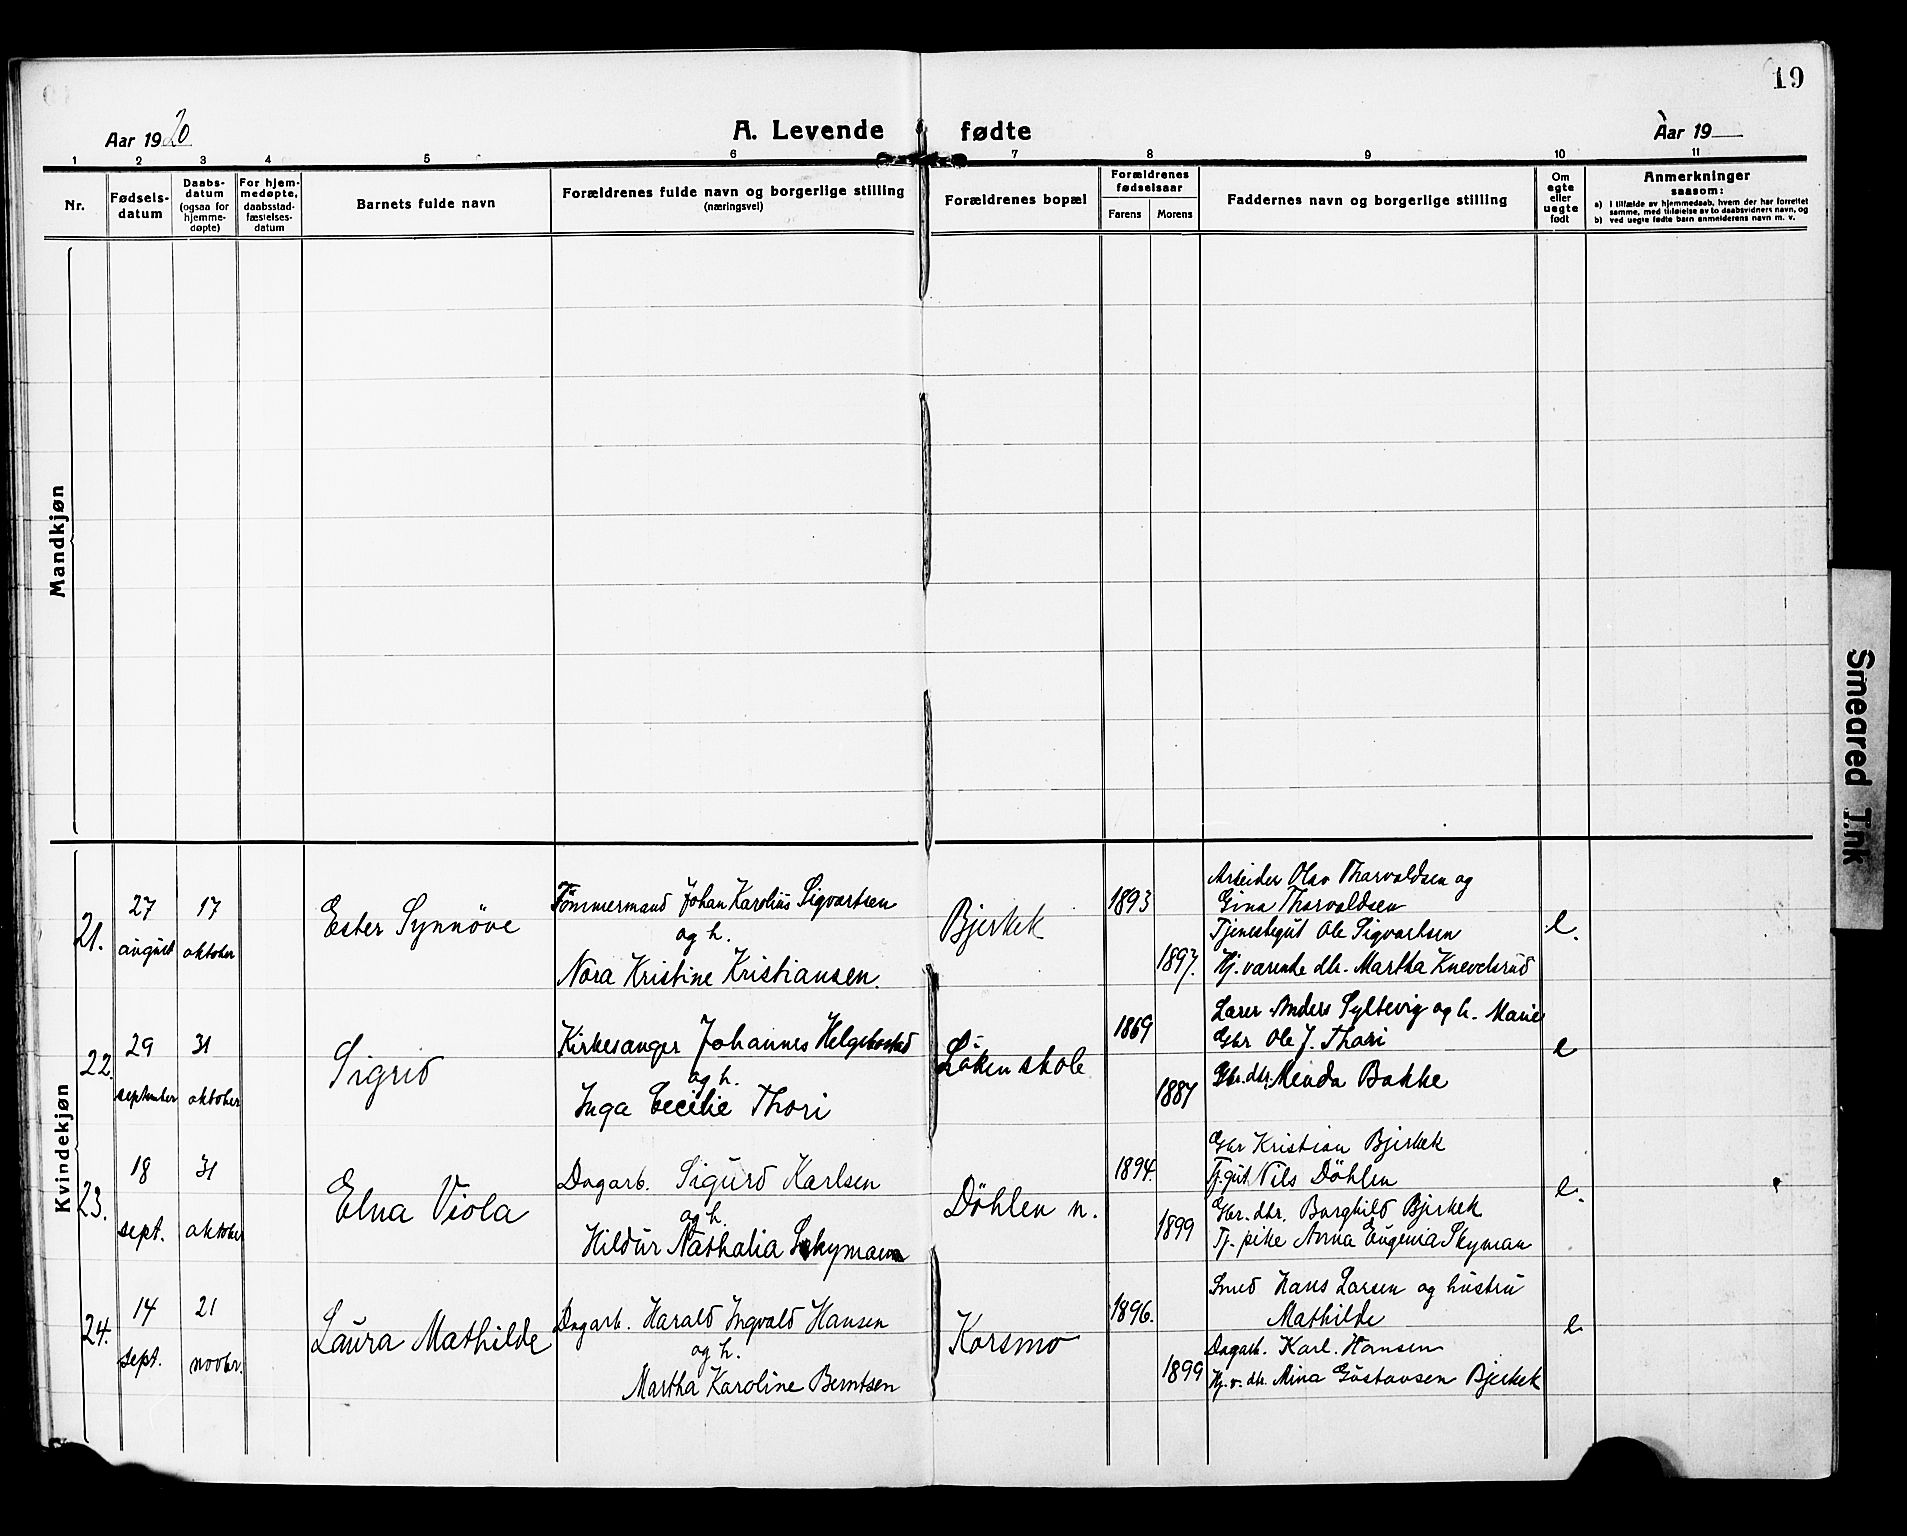 19
Aar 1920
A. Levende fødte
Aar 19
1 2 3 4 5 6 7 8 9 10 11
Nr.
Fødsels-
datum
Daabs-
datum
(ogsaa for
hjemme-
døpte)
For hjem-
medøpte,
daabsstad-
fæstelses-
datum
Barnets fulde navn
Forældrenes fulde navn og borgerlige stilling
(næringsvei)
Forældrenes bopæl
Forældrenes
fødselsaar
Farens
Morens
Faddernes navn og borgerlige stilling
Om
egte
eller
uegte
født
Anmerkninger
saasom:
a) i tilfælde av hjemmedaab, hvem der har forrettet
samme, med tilføielse av to daabsvidners navn, og
b) ved uegte fødte barn anmelderens navn m. v.
Mandkjøn
Kvindekjøn
21.
27
august
17
oktober
Ester Synnöve
Tömmermand Johan Karolius Sigvartsen
og h.
Nora Kristine Kristiansen.
Bjerkek
1893
1897.
Arbeider Olav Tharvaldsen og
Gina Tharvaldsen
Tjenestegut Ole Sigvartsen
Hj. værende dtr. Martha Knevelsrud
e.
22.
29
september
31
oktober
Sigrid
Kirkesanger Johannes Helgebostad
og h.
Inga Cecilie Thori
Löken skole
1869
1887
Lærer Anders Syltevig og h. Marie
Gbr Ole J. Thori
Gbr. dtr. Minda Bakke
e
23.
18
sept.
31
oktober
Elna Viola
Dagarb. Sigurd Karlsen
og h.
Hildur Nathalia Skymann
Döhlen n.
1894.
1899
Gbr Kristian Bjerkek
Tj.gut Nils Döhlen
Gbr. dtr. Borghild Bjerkek
Tj. pike Anna Eugenia Skyman
e.
24.
14
sept.
21
novbr.
Laura Mathilde
Dagarb. Harald Ingvald Hansen
og h.
Martha Karoline Berntsen
Korsmo
1896.
1899
Smed Hans Larsen og hustru
Mathilde
Dagarb. Karl. Hansen
Hj. v. dtr. Mina Gustavsen Bjerkek
e
Smeared Ink